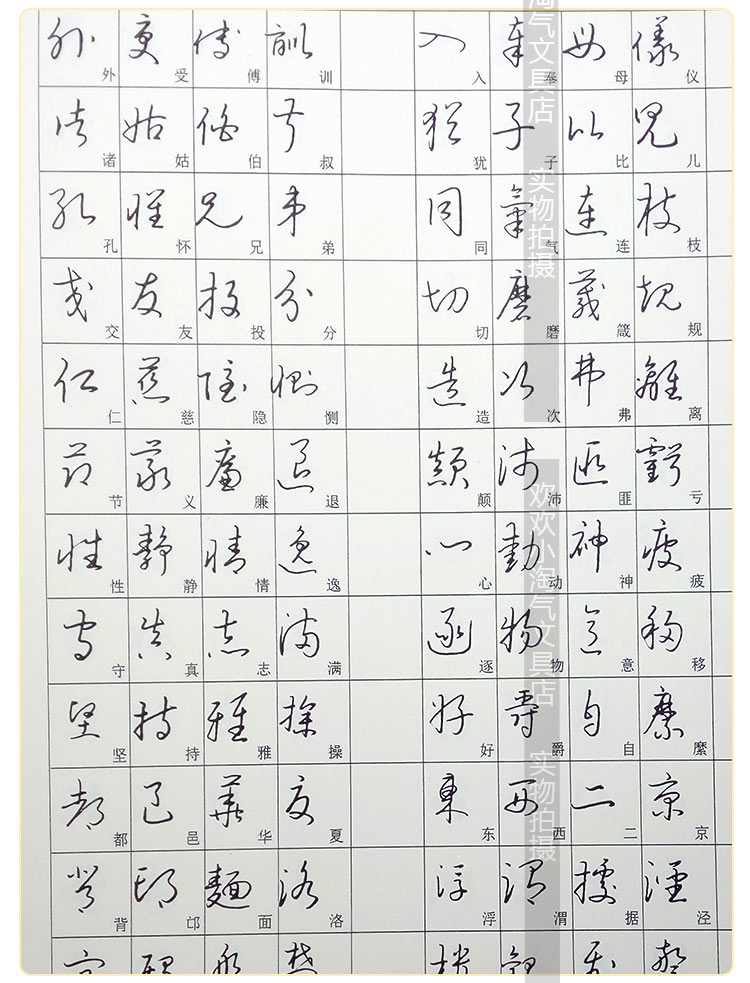 外受傅训 入奉母仪
诸姑伯叔 犹子比儿
孔怀兄弟 同气连枝
交友投分 切磨箴规
仁慈隐恻 造次弗离
节义廉退 颠沛匪亏
性静情逸 心动神疲
守真志满 逐物意移
坚持雅操 好爵自縻
都邑华夏 东西二京
背邙面洛 浮渭据泾
淘气文具店
实物拍摄
欢欢小淘气文具店
实物拍摄